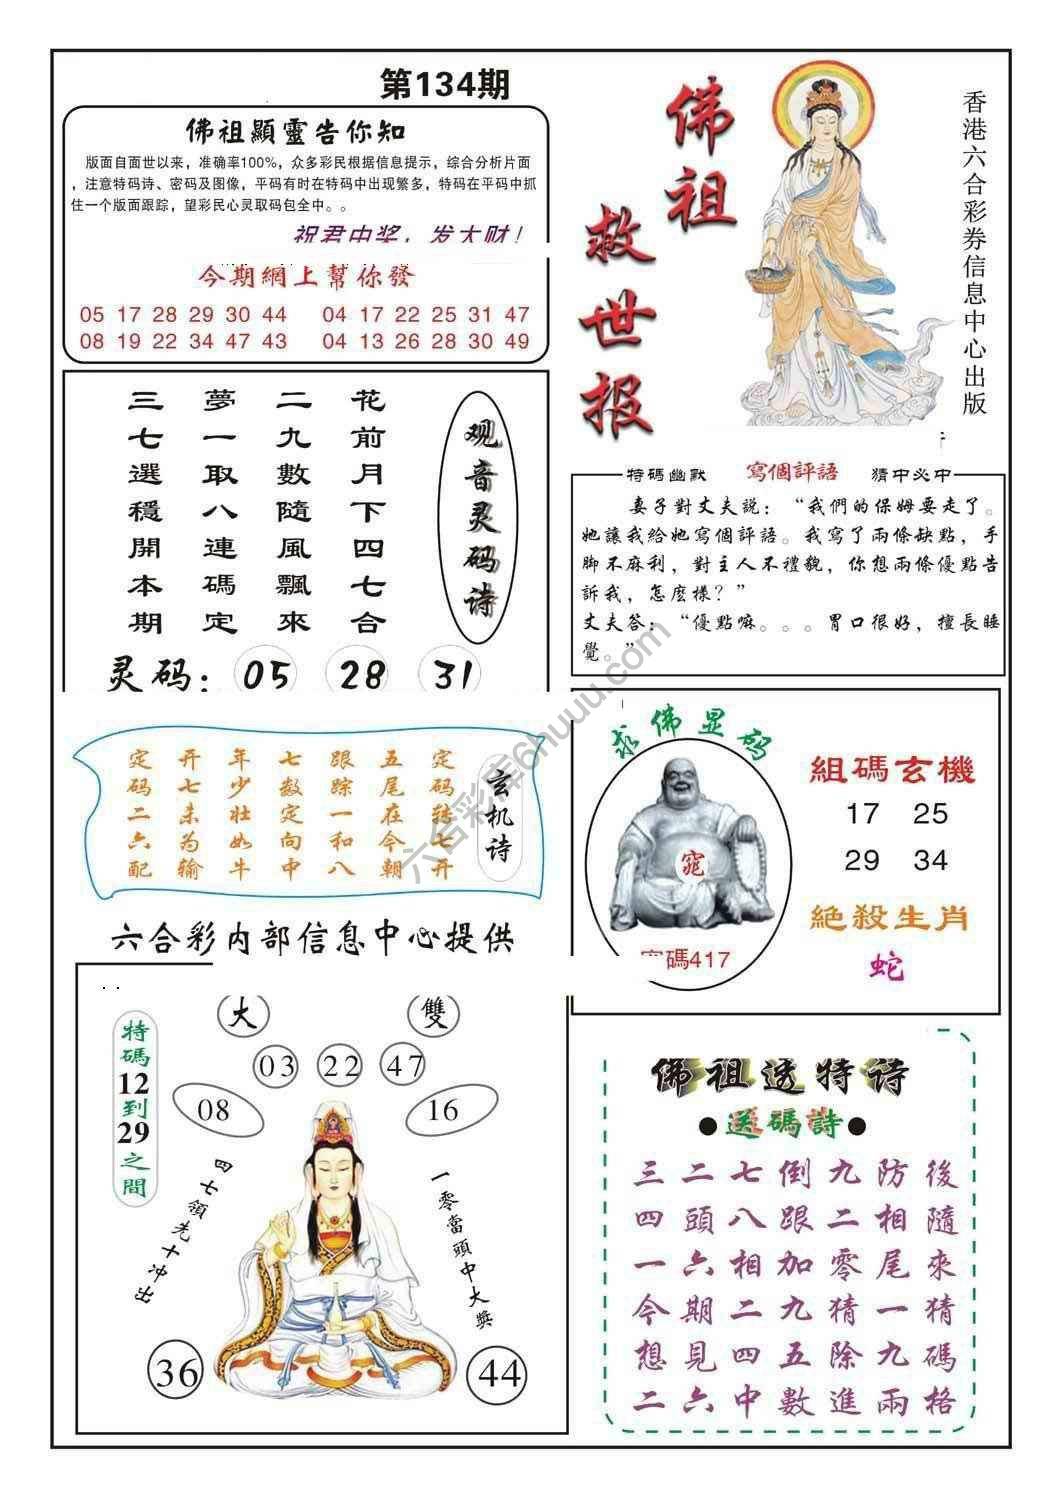 第134期
佛祖顯靈告你知
版面自面世以来，准确率100%，众多彩民根据信息提示，综合分析片面
，注意特码诗、密码及图像，平码有时在特码中出现繁多，特码在平码中抓
住一个版面跟踪，望彩民心灵取码包全中。。
祝君中奖，发大财！
今期網上幫你發
05 17 28 29 30 44 04 17 22 25 31 47
08 19 22 34 47 43 04 13 26 28 30 49
佛祖
救世报
香港六合彩券信息中心出版
观音灵码诗
花前月下四七合
二九數隨風飄來
夢一取八連碼定
三七選穩開本期
灵码：05 28 31
特碼幽默 寫個評語 猜中必中
妻子對丈夫説：“我們的保姆要走了。
她讓我給她寫個評語。我寫了兩條缺點，手
脚不麻利，對主人不禮貌，你想兩條優點告
訴我，怎麽樣？”
丈夫答：“優點嘛。。。胃口很好，擅長睡
覺。”
玄机诗
定码转七开
五尾在今朝
跟踪一和八
七数定向中
年少壮如牛
开七未为输
定码二六配
求佛显码
窕
密碼417
組碼玄機
17 25
29 34
絕殺生肖
蛇
六合彩内部信息中心提供
特碼12到29之間
大 雙
03 22 47
08 16
四七領先十冲出
一零當頭中大獎
36 44
佛祖透特诗
●送碼詩●
三二七倒九防後
四頭八跟二相隨
一六相加零尾來
今期二九猜一猜
想見四五除九碼
二六中數進兩格
六合彩库6huuu.com